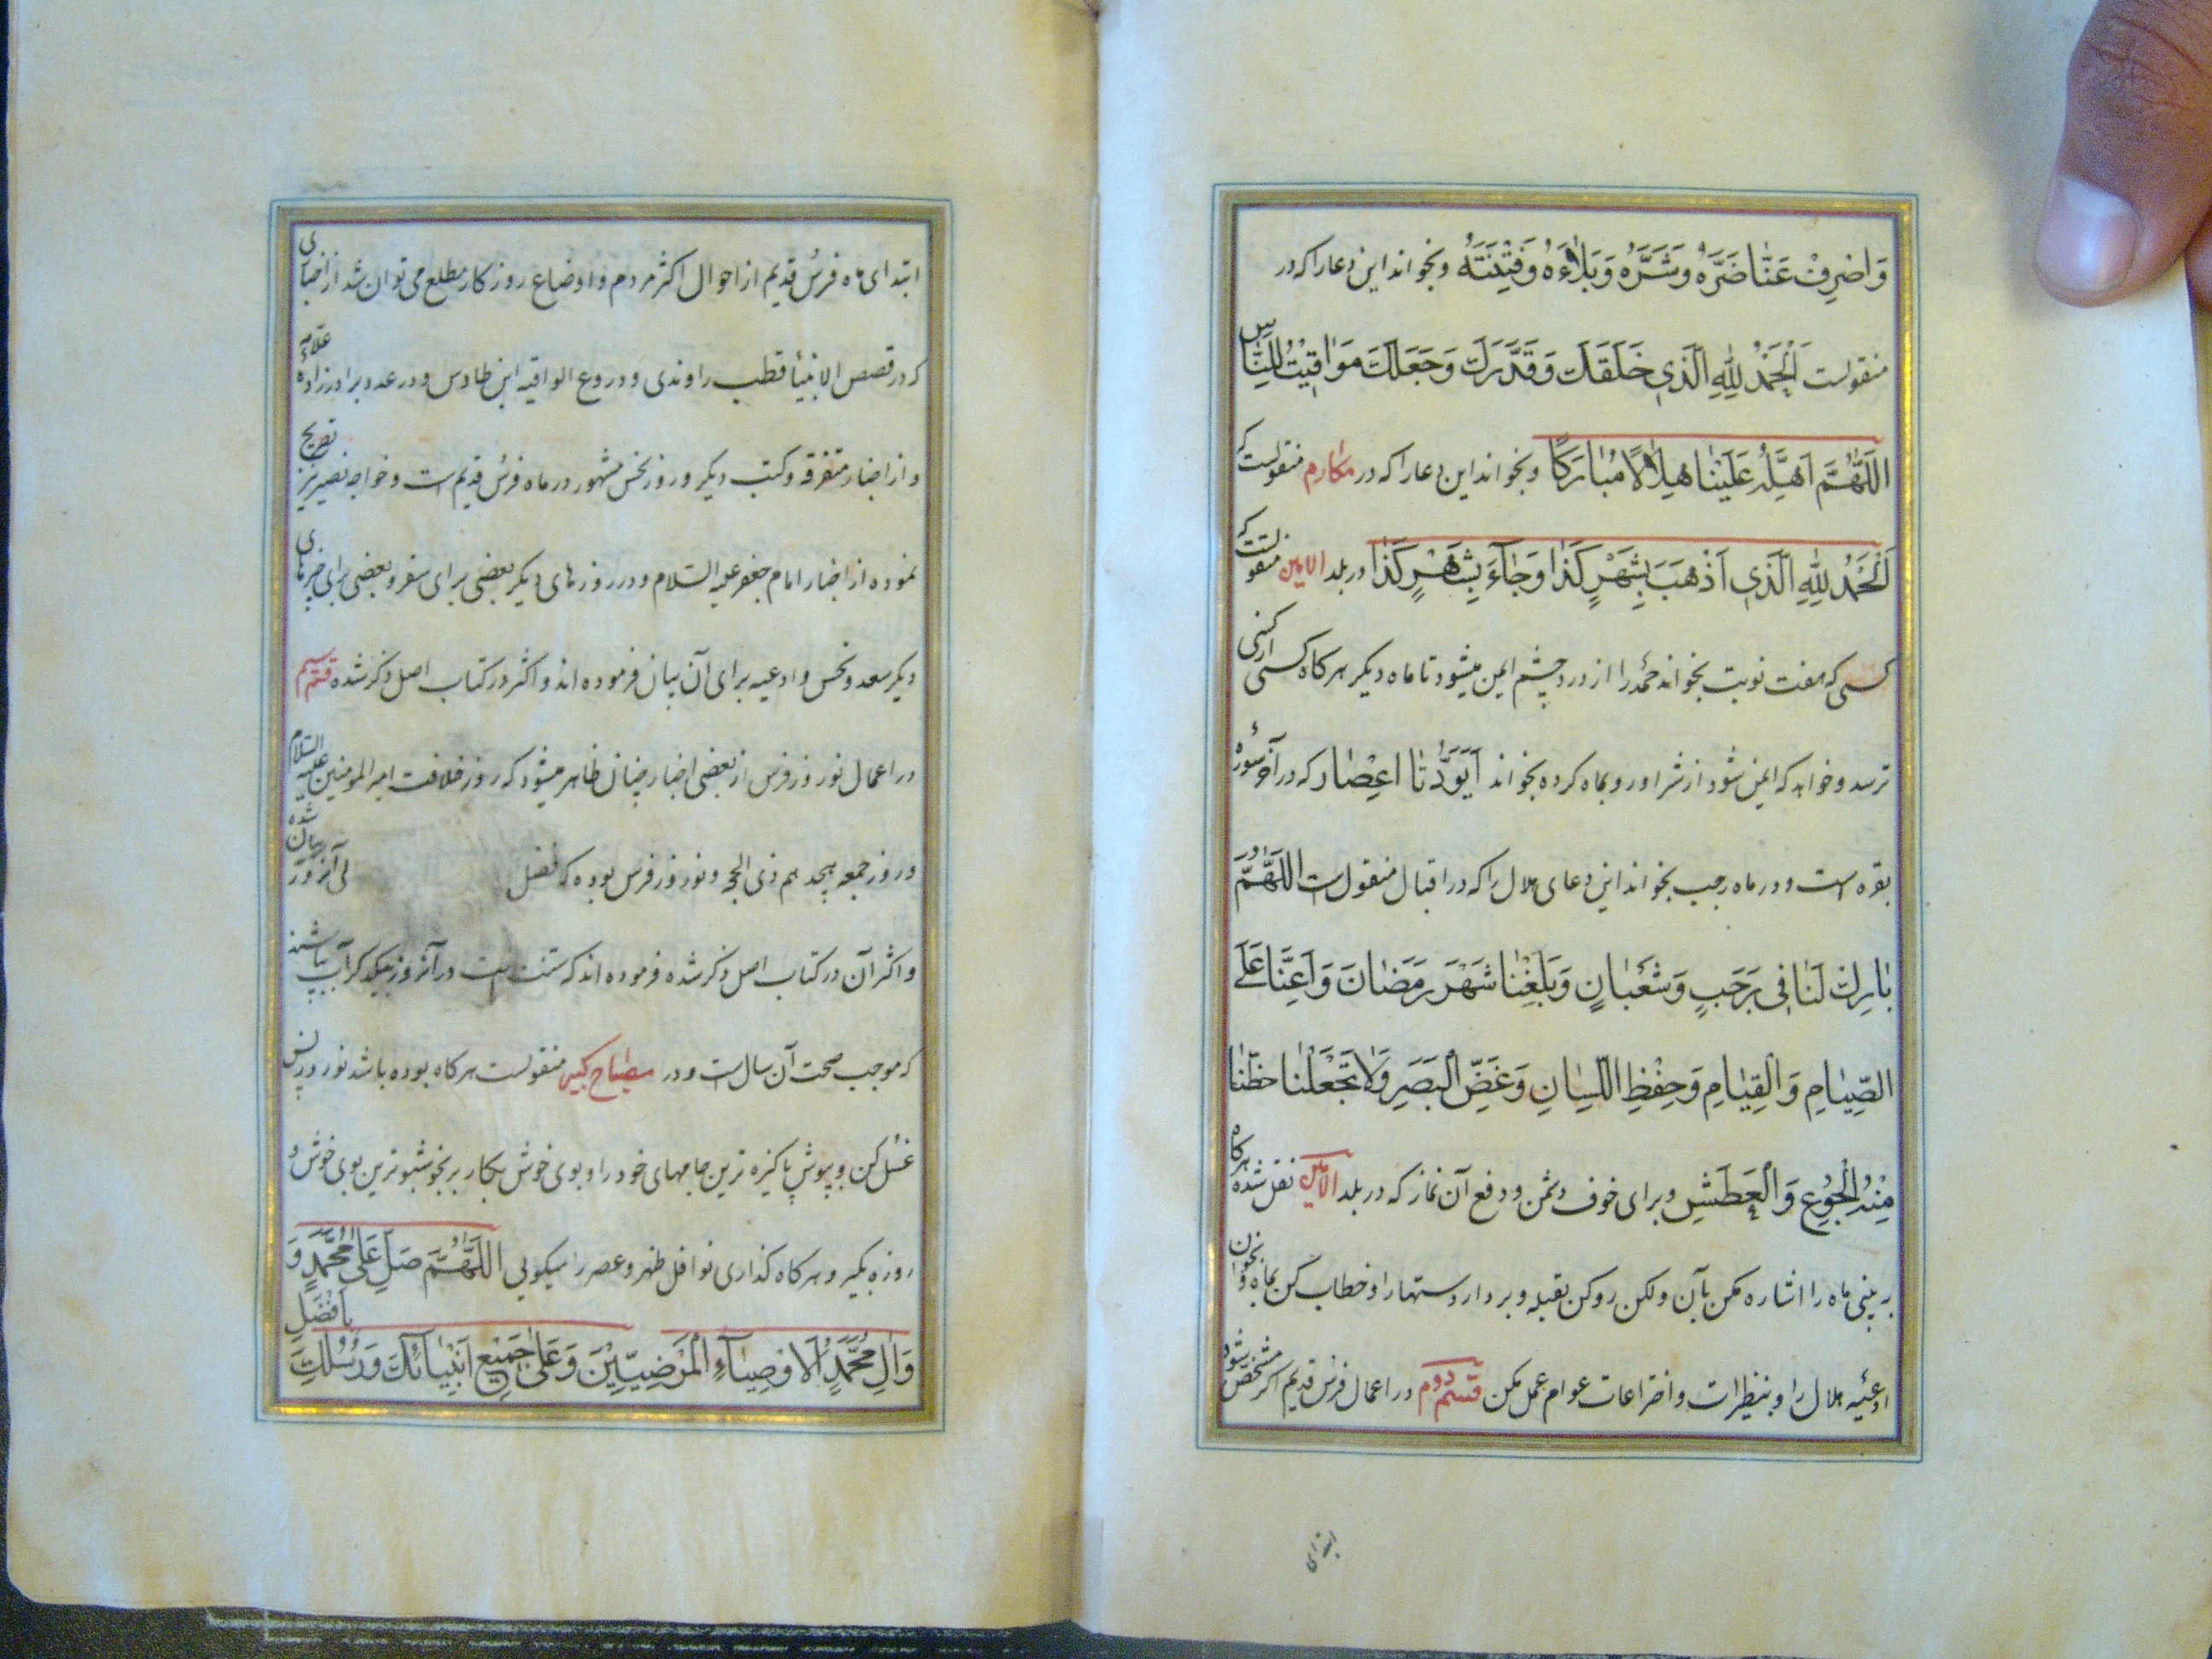 وَاصْرِفْ عَنَّا ضَرَّهُ وَشَرَّهُ وَبَلَاءَهُ وَفِتْنَتَهُ وبخواند این دعا را که در
منقولست اَلْحَمْدُ لِلّٰهِ الَّذِي خَلَقَكَ وَقَدَّرَكَ وَجَعَلَكَ مَوَاقِيْتَ لِلنَّاسِ
اَللّٰهُمَّ اَهِلَّهُ عَلَيْنَا هِلَالًا مُبَارَكًا وبخواند این دعا را که در مکارم منقولست که
اَلْحَمْدُ لِلّٰهِ الَّذِي اَذْهَبَ بِشَهْرِ كَذَا وَجَاءَ بِشَهْرِ كَذَا در بلد الامین منقولست که
کسی که هفت نوبت بخواند حمد را از درد چشم ایمن میشود تا ماه دیگر هرکاه کسی از کسی
ترسد و خواهد که ایمن شود از شر او رو بماه کرده بخواند اَيَوَدُّ تا اِعْصَار که در آخر سوره
بقره است و در ماه رجب بخواند این دعای هلال را که در اقبال منقول است اَللّٰهُمَّ
بَارِكْ لَنَا فِي رَجَبٍ وَشَعْبَانٍ وَبَلِّغْنَا شَهْرَ رَمَضَانَ وَاَعِنَّا عَلَى
الصِّيَامِ وَالْقِيَامِ وَحِفْظِ اللِّسَانِ وَغَضِّ الْبَصَرِ وَلَا تَجْعَلْنَا حَظَّنَا
مِنْهُ الْجُوْعِ وَالْعَطَشِ وبرای خوف دشمن و دفع آن نماز که در بلد الامین نقل شده هرکاه
به بینی ماه را اشاره مکن بآن ولکن رو کن بقبله و بردار دستها را و خطاب کن بماه و بخوان
ادعیهٔ هلال را و بنظرات و اختراعات عوام عمل مکن قسم دوم در اعمال فرس قدیم اکر مشخص شود
ابتدای
ابتدای ماه فرس قدیم از احوال اکثر مردم و اوضاع روزکار مطلع می توان شد از اخباری
که در قصص الانبیأ قطب راوندی و دروع الواقیه ابن طاوس و در عدد برادرزادهٔ علامه
و از اخبار متفرقه و کتب دیکر و روز نحس مشهور در ماه فرس قدیم است و خواجه نصیر نیز تصریح
نموده از اخبار امام جعفر علیه السلام و در روزهای دیکر بعضی برای سفر و بعضی برای چیزهای
دیکر سعد و نحس و ادعیه برای آن بیان فرموده اند و اکثر در کتاب اصل ذکر شده قسم سیم
در اعمال نوروز فرس از بعضی اخبار چنان ظاهر میشود که روز خلافت امیر المومنین علیه السلام
در روز جمعه هیجدهم ذی الحجه و نوروز فرس بوده که فضل آنروز بیان شده
و اکثر آن در کتاب اصل ذکر شده فرموده اند که سنت است در آنروز بیکدکر آب بپاشند
که موجب صحت آن سال است و در مصباح کبیر منقولست هرکاه بوده باشد نوروز پس
غسل کن و بپوش پاکیزه ترین جامهای خود را و بوی خوش بکار بر بخوشبوترین بوی خوش و
روزه بکیر و هرکاه کذاری نوافل ظهر و عصر را میکویی اَللّٰهُمَّ صَلِّ عَلَى مُحَمَّدٍ وَ
وَالِ مُحَمَّدٍ اَلْاَوْصِيَاءِ الْمَرْضِيِّيْنَ وَعَلَى جَمِيْعِ اَنْبِيَائِكَ وَرُسُلِكَ بِاَفْضَلِ